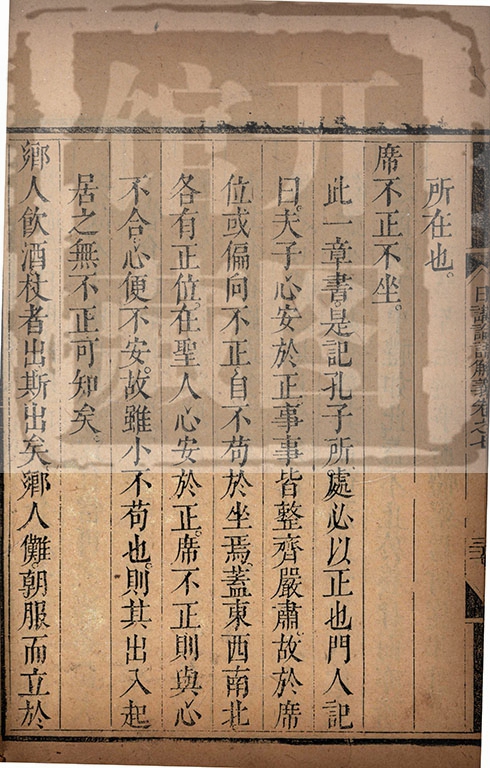 所在也。
席不正不坐。
此一章書。是記孔子所處必以正也。門人記
曰。夫子心安於正。事事皆整齊嚴肅。故於席
位或偏向不正。自不苟於坐焉。蓋東西南北
各有正位。在聖人心安於正。席不正則與心
不合。心便不安。故雖小不苟也。則其出入起
居之無不正可知矣。
鄉人飲酒。杖者出斯出矣。鄉人儺。朝服而立於